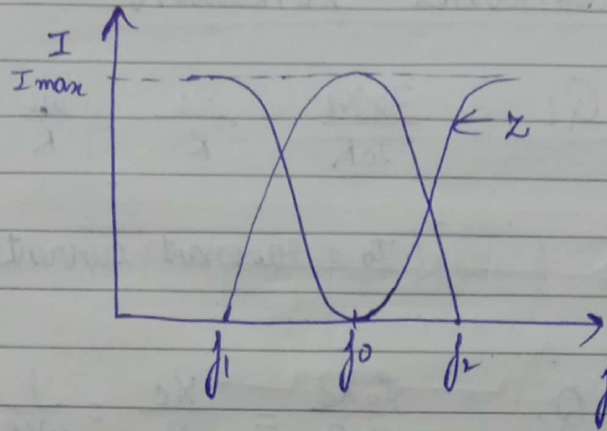 I
I max
Z
f1
f0
f2
f